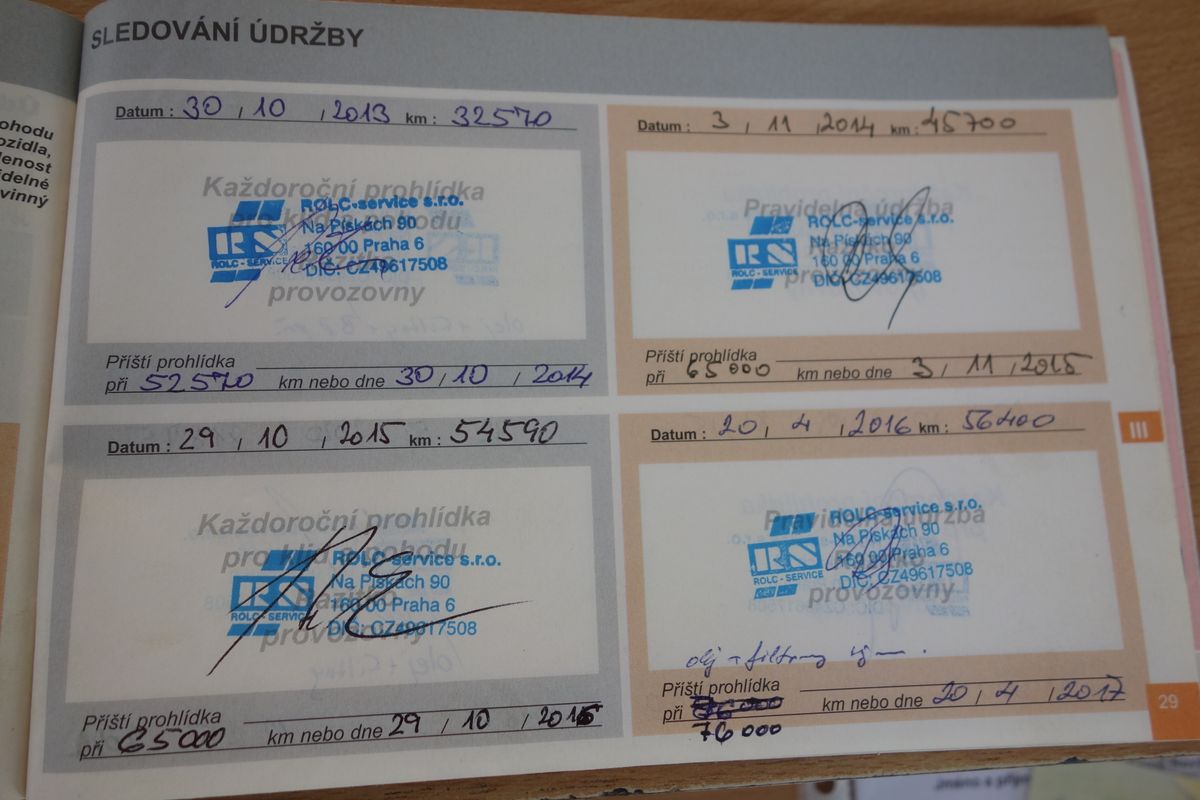 SLEDOVÁNÍ ÚDRŽBY
ohodu
ozidla,
lenost
idelné
vinný
Datum : 30 / 10 / 2013 km : 32570
Každoroční prohlídka
pro klid a pohodu
Razítko
provozovny
ROLC-service s.r.o.
Na Pískách 90
160 00 Praha 6
DIČ: CZ49617508
RS
ROLC - SERVICE
Příští prohlídka
při 52570 km nebo dne 30 / 10 / 2014
Datum : 3 / 11 / 2014 km : 45700
Pravidelná údržba
Razítko
provozovny
ROLC-service s.r.o.
Na Pískách 90
160 00 Praha 6
DIČ: CZ49617508
RS
ROLC - SERVICE
Příští prohlídka
při 65000 km nebo dne 3 / 11 / 2015
Datum : 29 / 10 / 2015 km : 54590
Každoroční prohlídka
pro klid a pohodu
Razítko
provozovny
ROLC-service s.r.o.
Na Pískách 90
160 00 Praha 6
DIČ: CZ49617508
RS
ROLC - SERVICE
Příští prohlídka
při 65000 km nebo dne 29 / 10 / 2016
Datum : 20 / 4 / 2016 km : 56400
Pravidelná údržba
Razítko
provozovny
ROLC-service s.r.o.
Na Pískách 90
160 00 Praha 6
DIČ: CZ49617508
RS
ROLC - SERVICE
olej + filtry
Příští prohlídka
při km nebo dne 20 / 4 / 2017
76 000
III
29